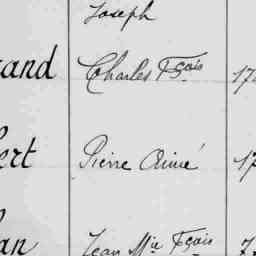 Joseph
and Charles Fçois 17
ert Pierre Aimé 17
an Jean Mie Fçois